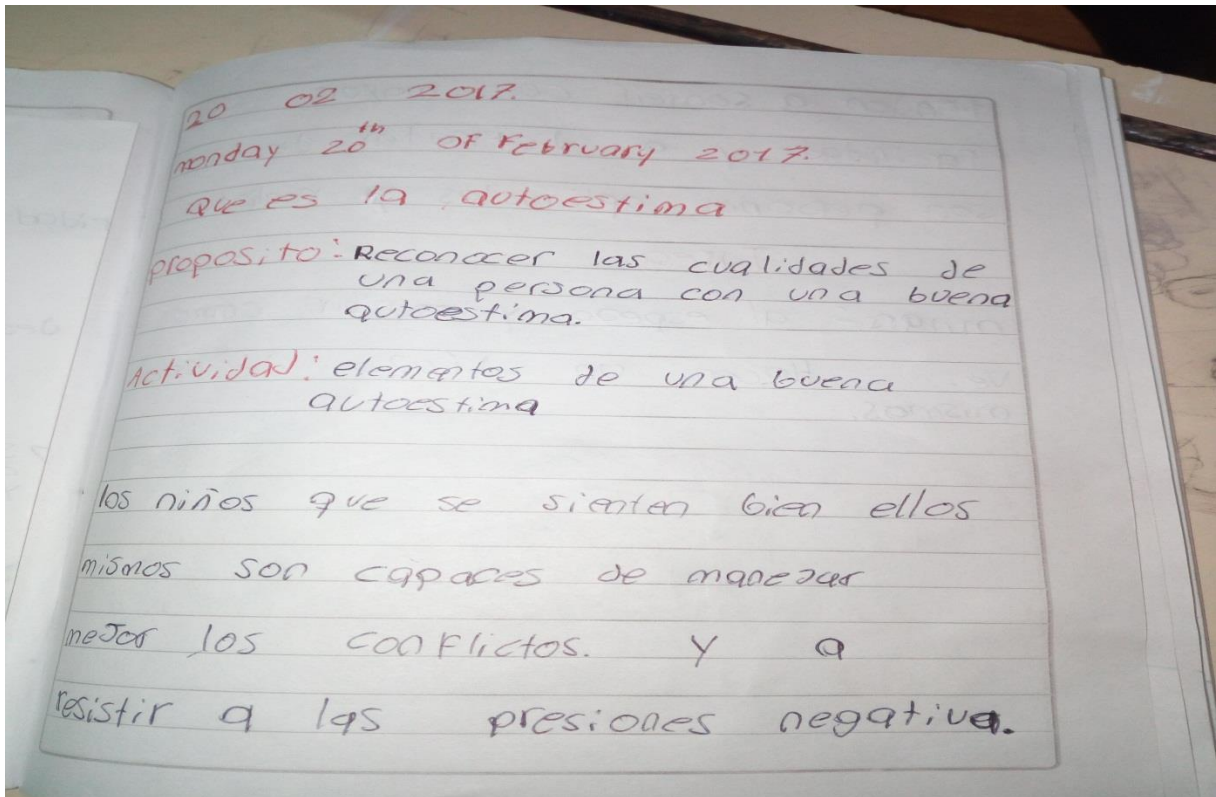 20 02 2017.
monday 20th OF February 2017.
que es la autoestima
proposito: Reconocer las cualidades de
una persona con una buena
autoestima.
Actividad: elementos de una buena
autoestima
los niños que se sienten bien ellos
mismos son capaces de manejar
mejor los conflictos. Y a
resistir a las presiones negativa.